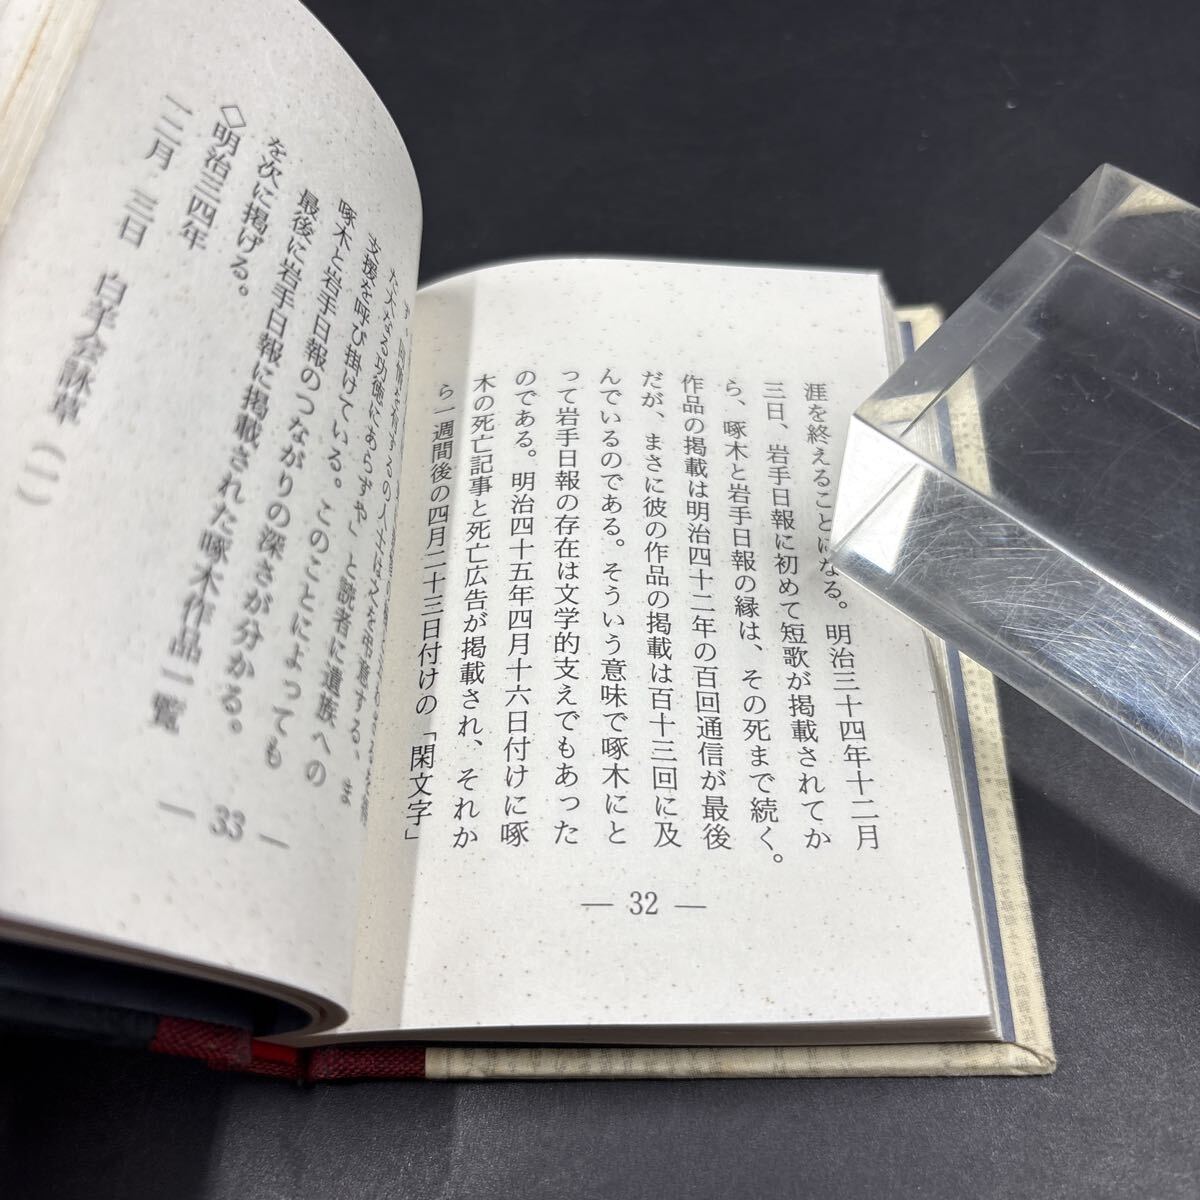 涯を終えることになる。明治三十四年十二月
三日、岩手日報に初めて短歌が掲載されてか
ら、啄木と岩手日報の縁は、その死まで続く。
作品の掲載は明治四十二年の百回通信が最後
だが、まさに彼の作品の掲載は百十三回に及
んでいるのである。そういう意味で啄木にと
って岩手日報の存在は文学的支えでもあった
のである。明治四十五年四月十六日付けに啄
木の死亡記事と死亡広告が掲載され、それか
ら一週間後の四月二十三日付けの「閑文字」
― 32 ―
た大なる功徳にあらずや」と読者に遺族への
支援を呼び掛けている。
啄木と岩手日報のつながりの深さが分かる。
最後に岩手日報に掲載された啄木作品一覧
を次に掲げる。
◇明治三四年
一二月 三日 白羊会詠草(一)
― 33 ―